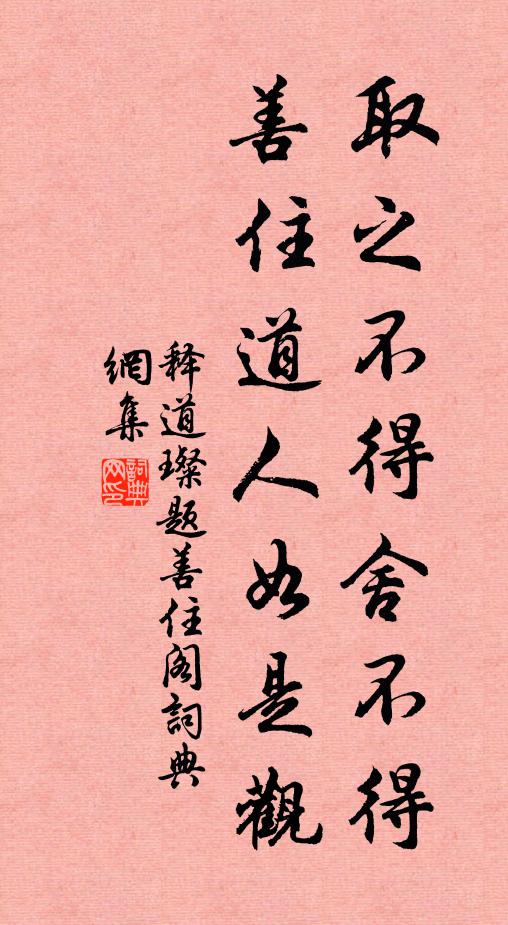 取之不得舍不得
善住道人如是觀
释道璨题善住阁詞典
網集
詞典网印